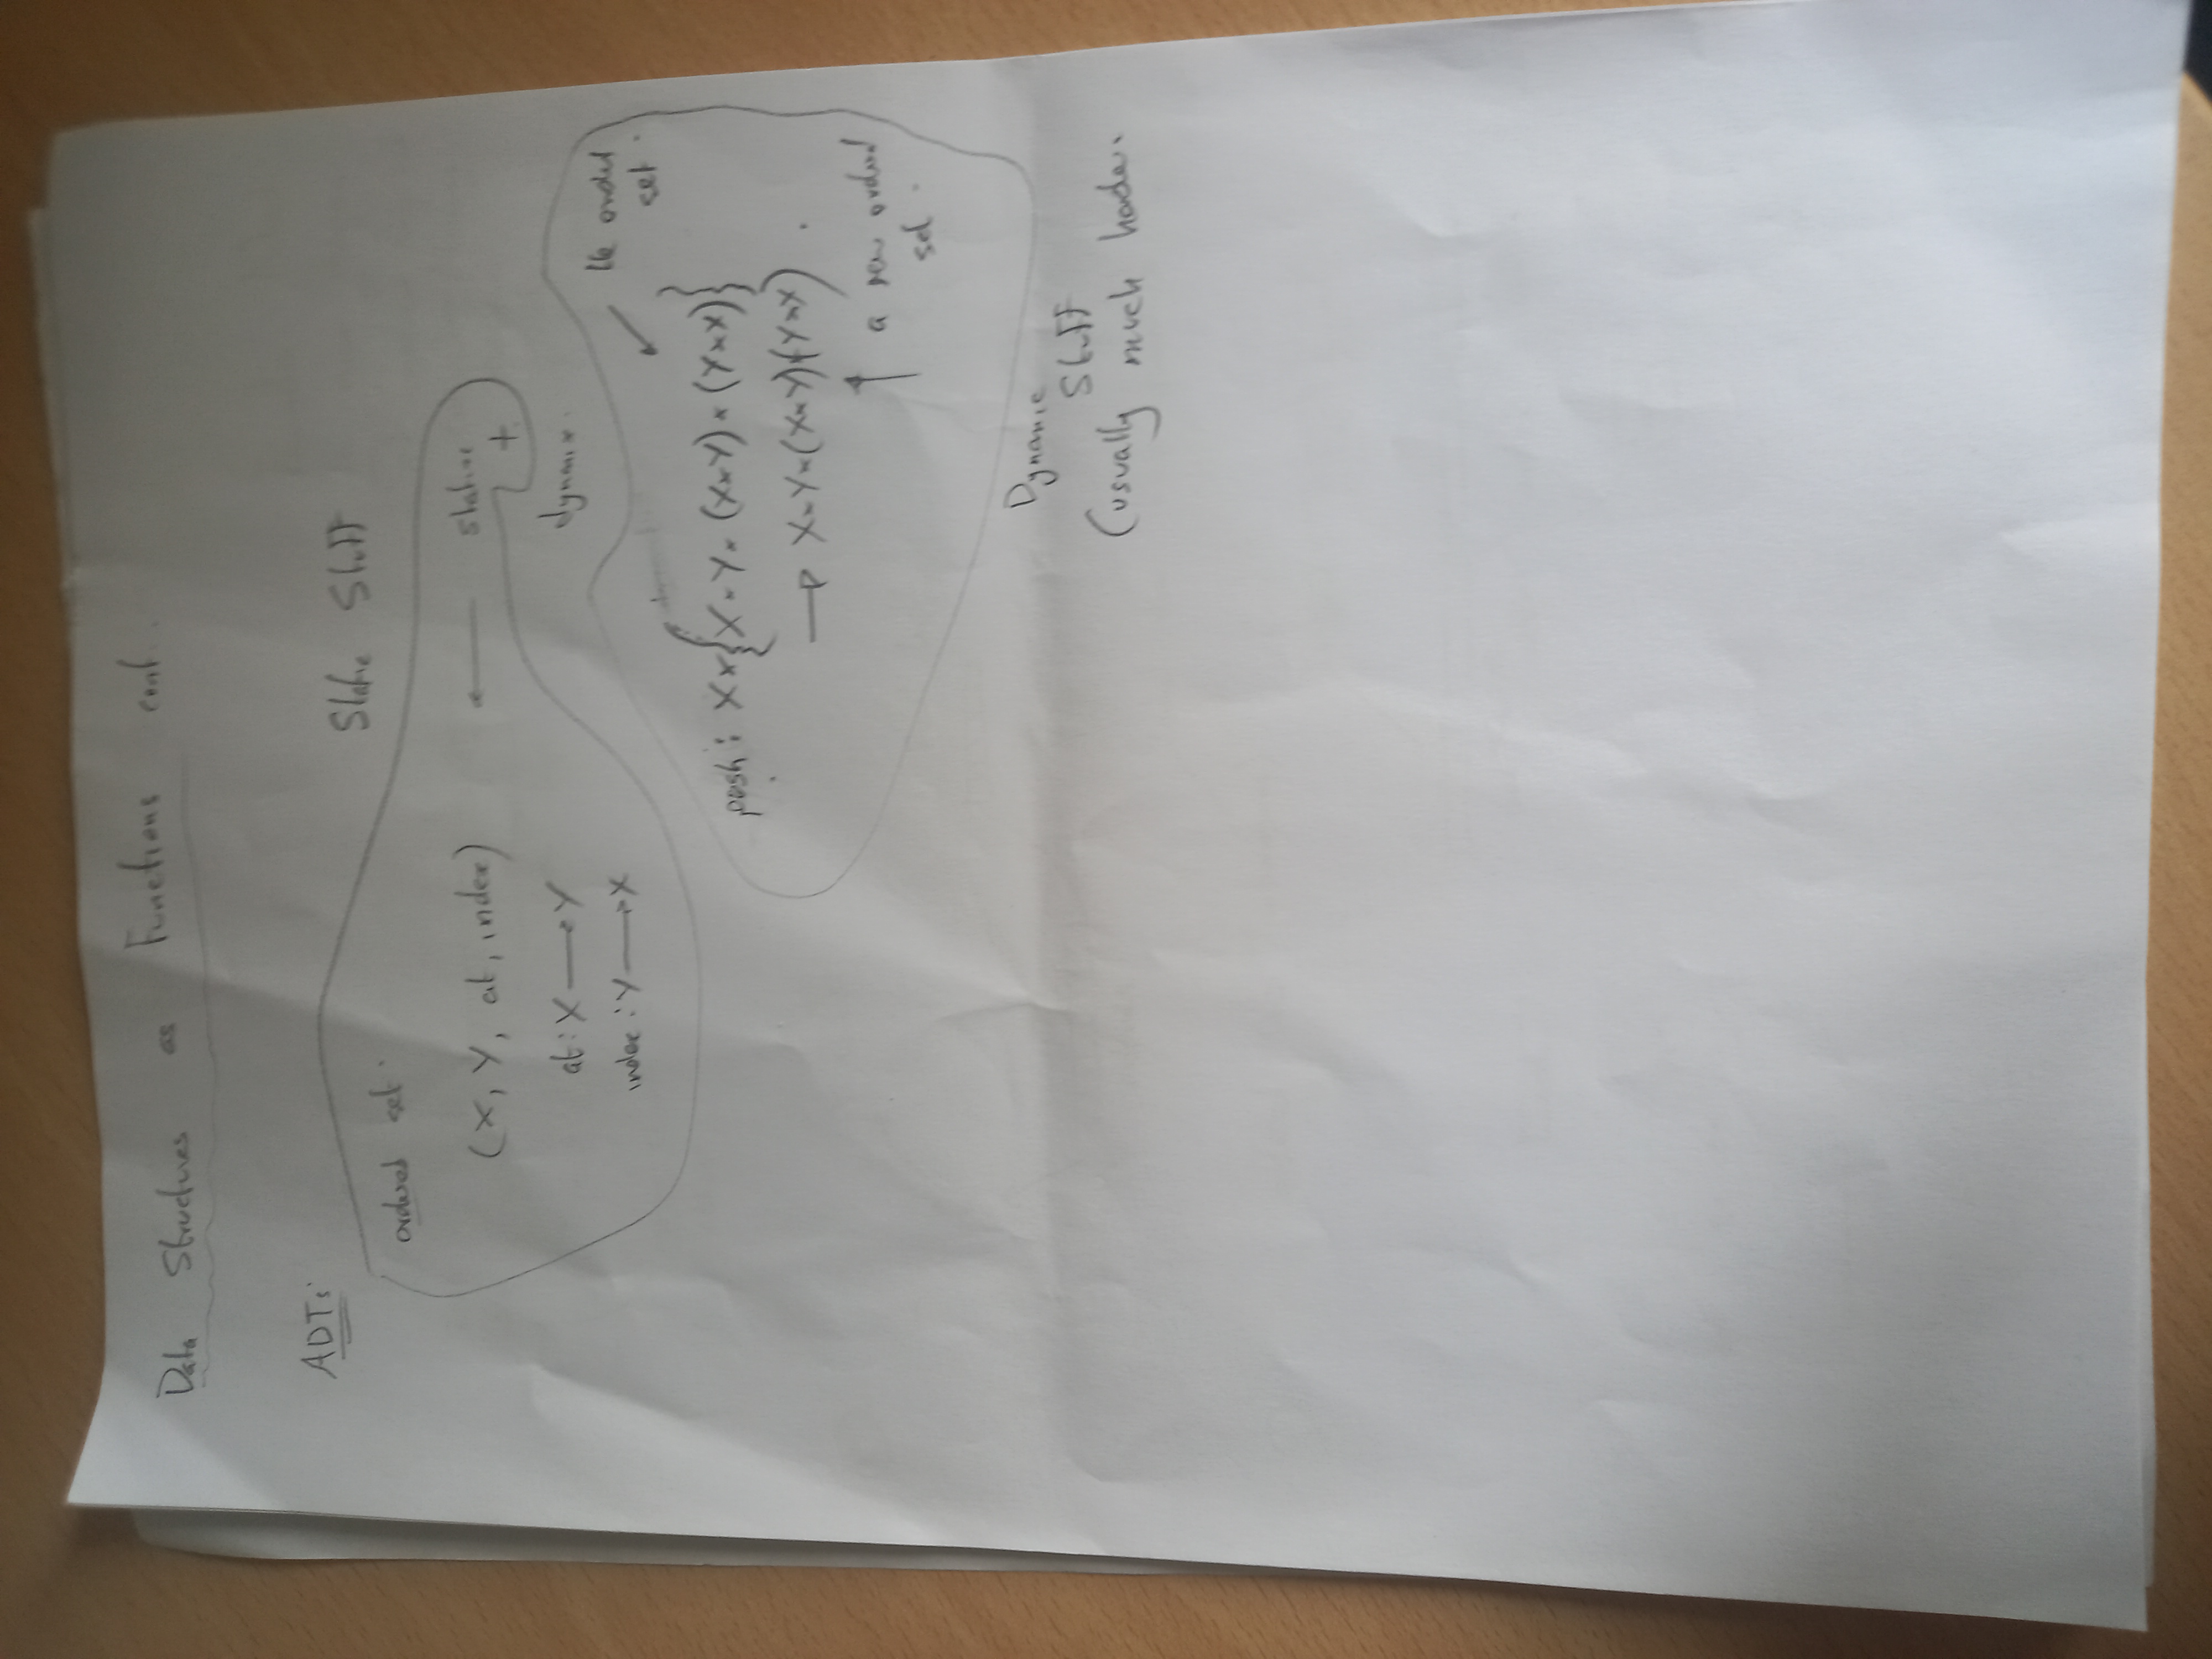 Data Structures as Functions cont..
ADTs:
Static Stuff
ordered set.
(X, Y, at, index) ← static
+
at: X → Y
dynamic.
index: Y → X
the ordered
set.
push: X × {X × Y × (X×Y) × (Y×X)}
→ X × Y × (X×Y) × (Y×X) .
↑ a new ordered
set.
Dynamic
Stuff
(usually much harder.